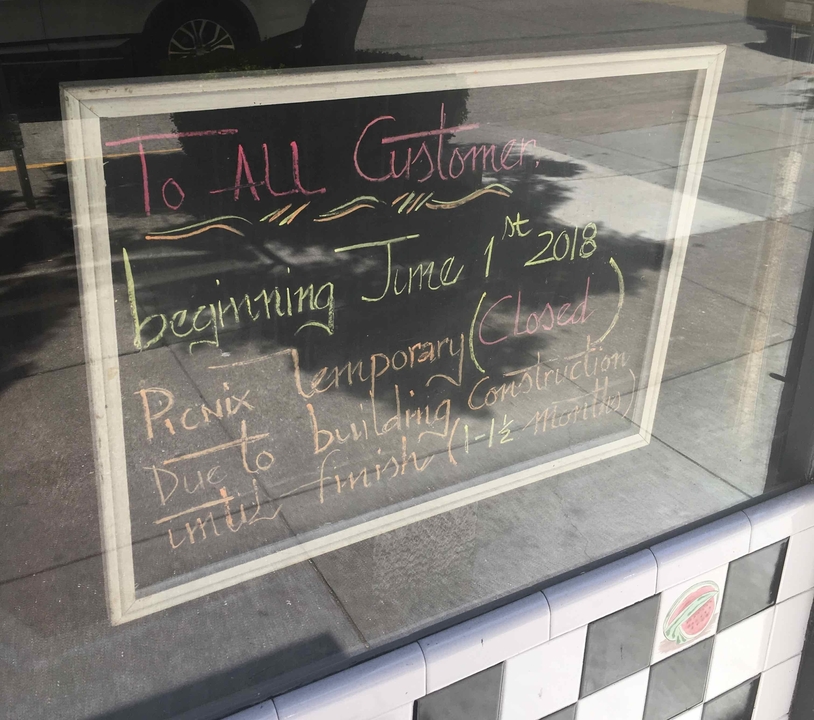 To ALL Customer.
beginning June 1st 2018
Picnix Temporary (Closed)
Due to building Construction
until finish (1-1½ Months)